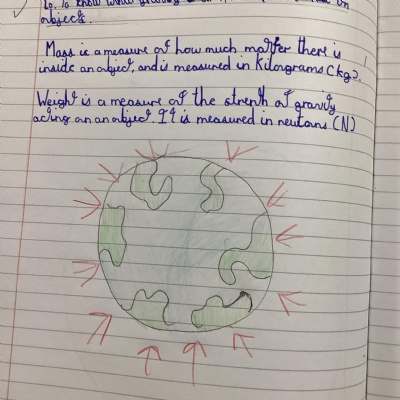 Lo. To know what gravity is
on
objects.
Mass is a measure of how much matter there is
inside an object, and is measured in Kilograms (kg).
Weight is a measure of the strenth of gravity
acting an an object. It is measured in newtons (N)